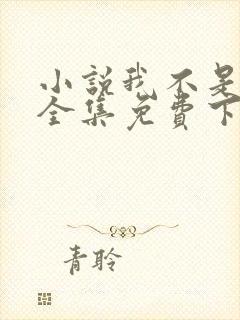 小说我不是
全集免费下
青聆